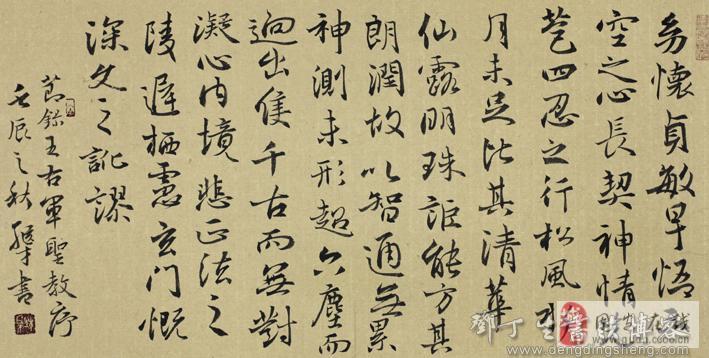 幼懷貞敏早悟
空之心長契神情
苞四忍之行松風
月未足比其清華
仙露明珠詎能方其
朗潤故以智通無累
神測未形超六塵而
迥出隻千古而無對
凝心內境悲正法之
陵遲栖慮玄門慨
深文之訛謬
節錄王右軍聖教序
壬辰之秋 書